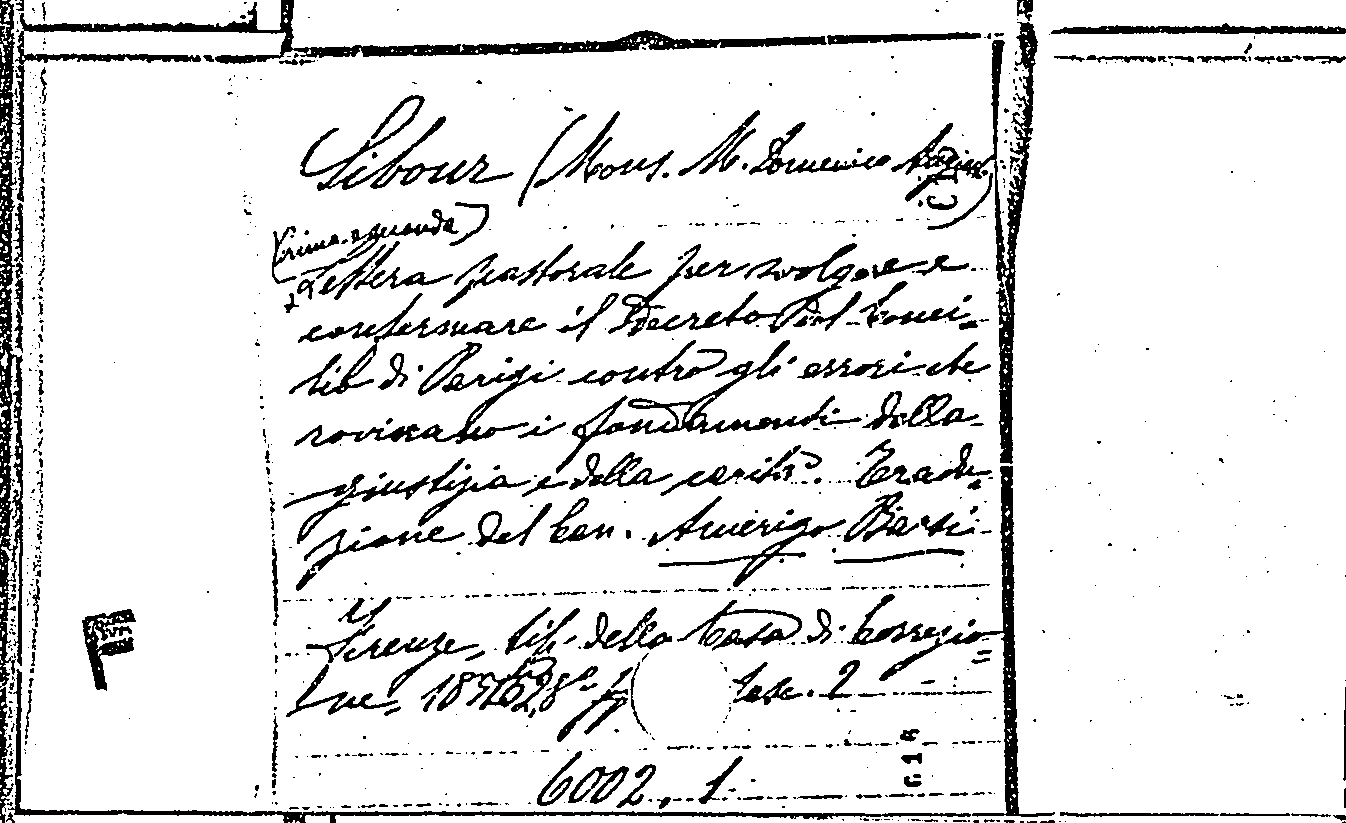 Sibour (Mons. M. Domenico August.)
(Prima e seconda)
Lettera pastorale per svolgere e
confermare il Decreto del Conci-
lio di Parigi contro gli errori che
rovinano i fondamenti della
giustizia e della carità. Tradu-
zione del Can. Amerigo Barsi
Firenze, tip. della Casa di Correzio-
ne, 8º fasc. 2
6002.1